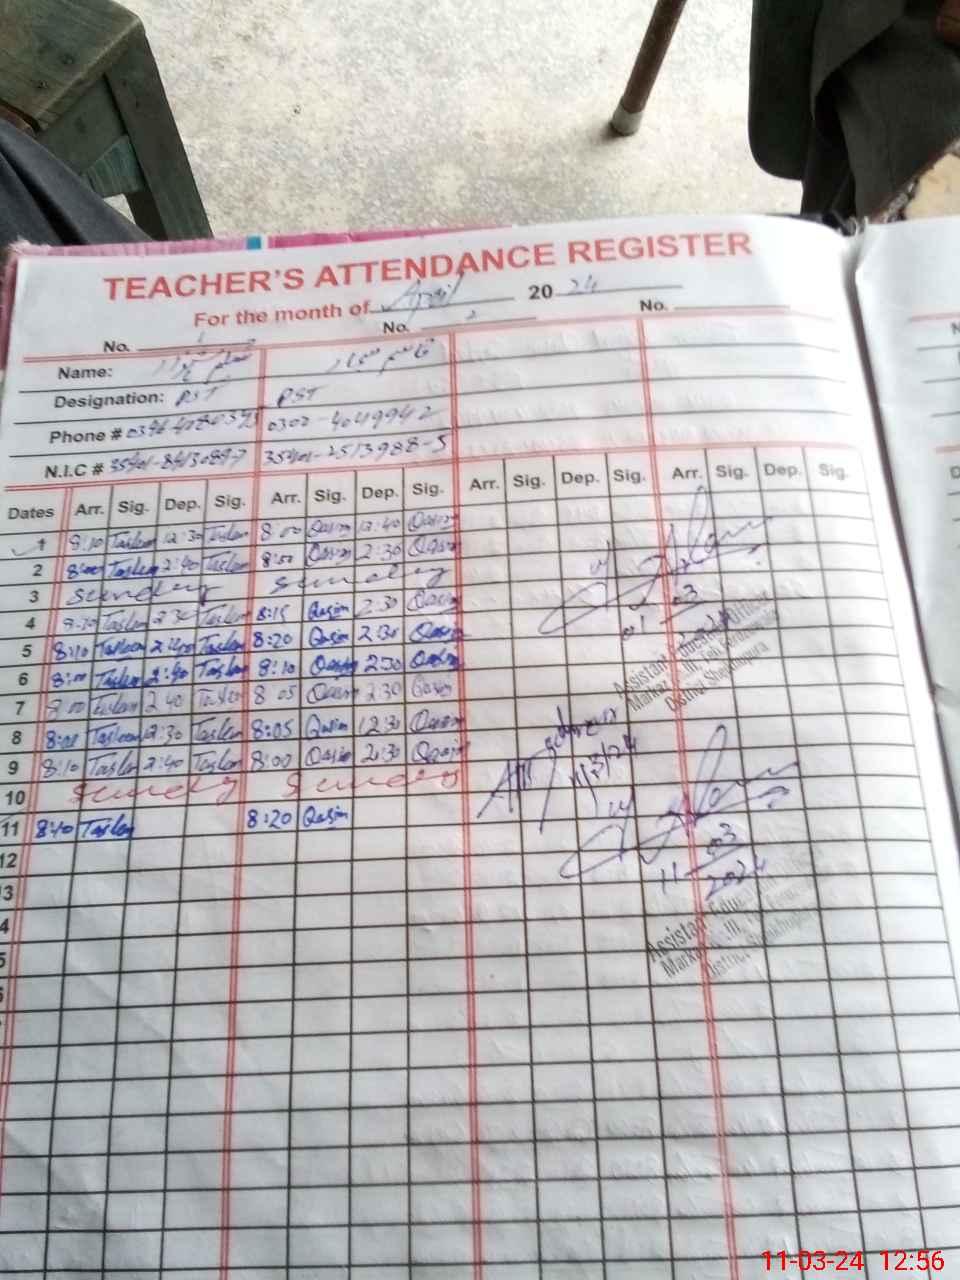 TEACHER'S ATTENDANCE REGISTER
For the month of April 2024
No. 1 No. 2 No.
Name:
Designation: PST PST
Phone # 0300-4049942
N.I.C # 35401-2513988-5
Dates Arr. Sig. Dep. Sig. Arr. Sig. Dep. Sig. Arr. Sig. Dep. Sig. Arr. Sig. Dep. Sig.
1 8:10 Taslem 12:30 Taslem 8:00 Qasim 12:40 Qasim
2 8:00 Taslem 2:40 Taslem 8:00 Qasim 2:30 Qasim
3 Sunday Sunday
4 8:20 Taslem 2:30 Taslem 8:15 Qasim 2:30 Qasim
5 8:10 Taslem 2:40 Taslem 8:20 Qasim 2:30 Qasim
6 8:00 Taslem 2:40 Taslem 8:10 Qasim 2:30 Qasim
7 8:00 Taslem 2:40 Taslem 8:05 Qasim 2:30 Qasim
8 8:00 Taslem 12:30 Taslem 8:05 Qasim 12:30 Qasim
9 8:10 Taslem 2:40 Taslem 8:00 Qasim 2:30 Qasim
10 Sunday Sunday
11 8:10 Taslem 8:20 Qasim
12
01 03 2024
Assistant Education Officer
Markaz
District Sheikhupura
11/3/24
11 03 2024
Assistant Education
Markaz
District Sheikhupura
11-03-24 12:56